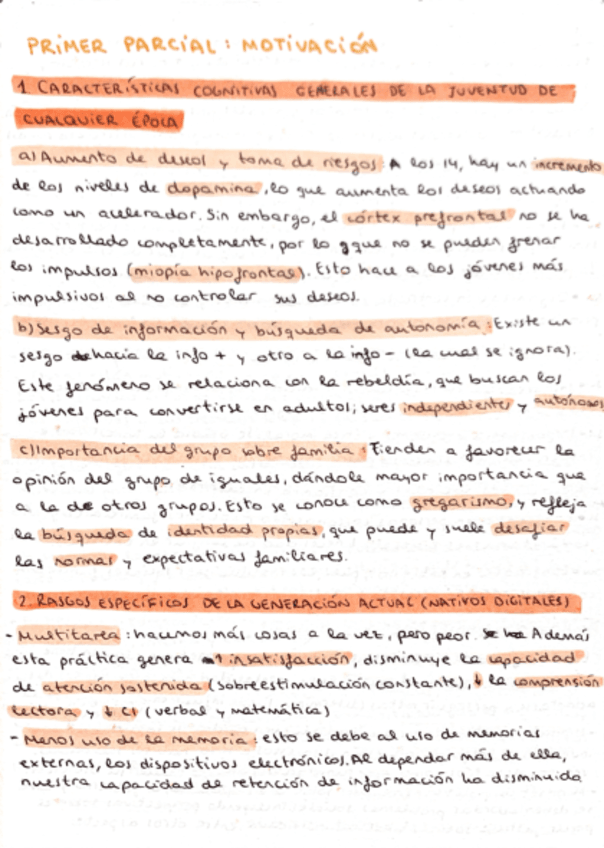 PRIMER PARCIAL: MOTIVACIÓN
1 CARACTERÍSTICAS COGNITIVAS GENERALES DE LA JUVENTUD DE
CUALQUIER ÉPOCA
a) Aumento de deseos y toma de riesgos: A los 14, hay un incremento
de los niveles de dopamina, lo que aumenta los deseos actuando
como un acelerador. Sin embargo, el córtex prefrontal no se ha
desarrollado completamente, por lo que no se pueden frenar
los impulsos (miopía hipofrontal). Esto hace a los jóvenes más
impulsivos al no controlar sus deseos.
b) Sesgo de información y búsqueda de autonomía: Existe un
sesgo hacia la info + y otro a la info - (la cual se ignora).
Este fenómeno se relaciona con la rebeldía, que buscan los
jóvenes para convertirse en adultos; seres independientes y autónomos
c) Importancia del grupo sobre familia: Tienden a favorecer la
opinión del grupo de iguales, dándole mayor importancia que
a la de otros grupos. Esto se conoce como gregarismo, y refleja
la búsqueda de identidad propias, que puede y suele desafiar
las normas y expectativas familiares.
2. RASGOS ESPECÍFICOS DE LA GENERACIÓN ACTUAL (NATIVOS DIGITALES)
- Multitarea: hacemos más cosas a la vez, pero peor. Además
esta práctica genera ↑ insatisfacción, disminuye la capacidad
de atención sostenida (sobreestimulación constante), ↓ la comprensión
lectora y ↓ CI (verbal y matemática)
- Menos uso de la memoria: esto se debe al uso de memorias
externas, los dispositivos electrónicos. Al depender más de ella,
nuestra capacidad de retención de información ha disminuido